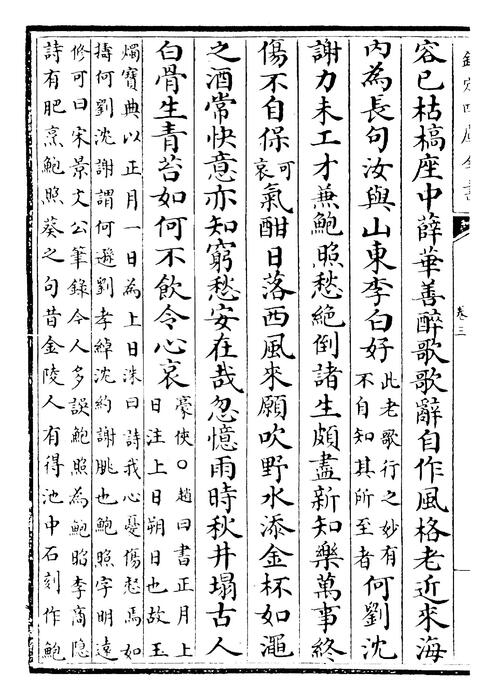 欽定四庫全書
卷三
容已枯槁座中薛華善醉歌歌辭自作風格老近來海
內為長句汝與山東李白好此老歌行之妙有不自知其所至者何劉沈
謝力未工才兼鮑照愁絕倒諸生頗盡新知樂萬事終
傷不自保可哀氣酣日落西風來願吹野水添金杯如澠
之酒常快意亦知窮愁安在哉忽憶雨時秋井塌古人
白骨生青苔如何不飲令心哀豪俠○趙曰書正月上日注上日朔日也故玉
燭寶典以正月一日為上日洙曰詩我心憂傷惄焉如
擣何劉沈謝謂何遜劉孝綽沈約謝朓也鮑照字明遠
修可曰宋景文公筆錄今人多誤鮑照為鮑昭李商隱
詩有肥烹鮑照葵之句昔金陵人有得池中石刻作鮑